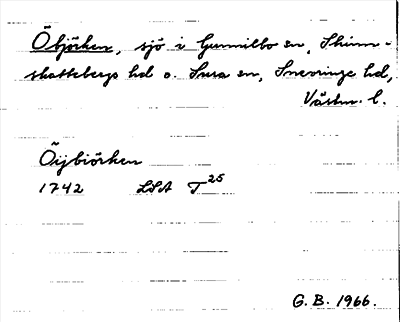 Öbjörken, sjö i Gunnilbo sn, Skinn-
skattebergs hd o. Sura sn, Snevringe hd,
Västm. l.
Öijbiörken
1742 LSA T25
G. B. 1966.